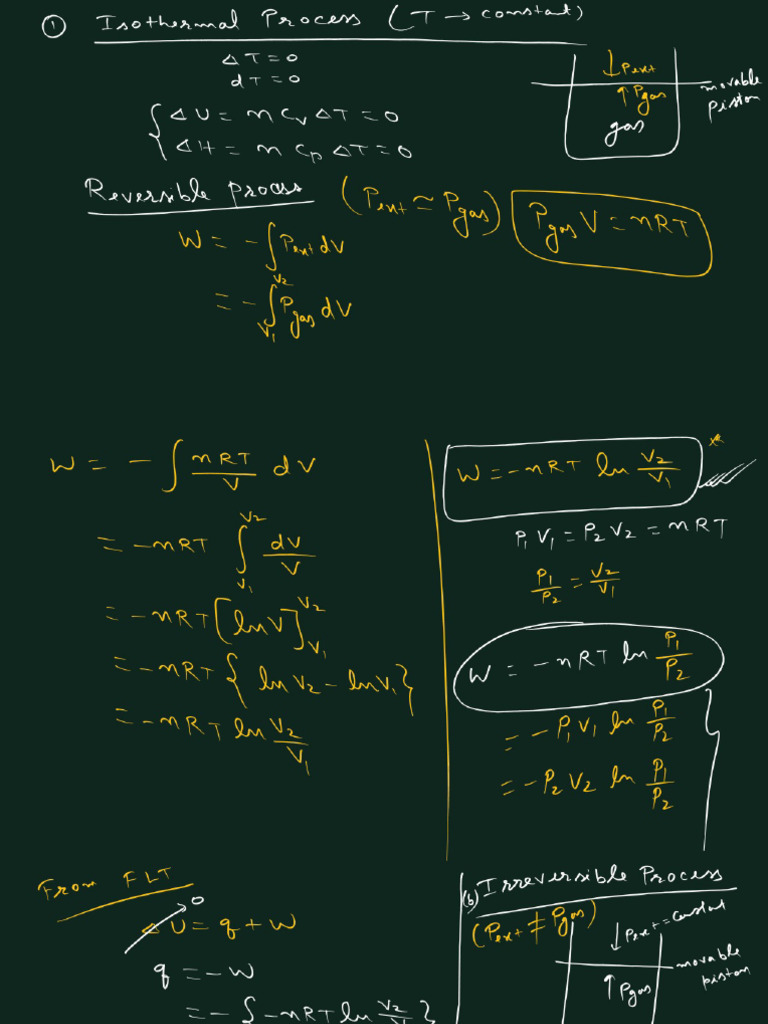 ① Isothermal Process (T → constant)
ΔT = 0
dT = 0
ΔU = n Cv ΔT = 0
ΔH = n Cp ΔT = 0
↓Pext
↑Pgas
gas
movable
piston
Reversible process (Pext ≃ Pgas)
PgasV = nRT
W = -∫Pext dV
= -∫_{V1}^{V2} Pgas dV
W = -∫ nRT/V dV
= -nRT ∫_{V1}^{V2} dV/V
= -nRT [lnV]_{V1}^{V2}
= -nRT { lnV2 - lnV1 }
= -nRT ln V2/V1
W = -nRT ln V2/V1 *
P1V1 = P2V2 = nRT
P1/P2 = V2/V1
W = -nRT ln P1/P2
= -P1V1 ln P1/P2
= -P2V2 ln P1/P2
From FLT
ΔU = q + W
0
q = -W
= -{ -nRT ln V2/V1 }
(b) Irreversible Process
(Pext ≠ Pgas)
↓Pext = constant
movable
piston
↑Pgas